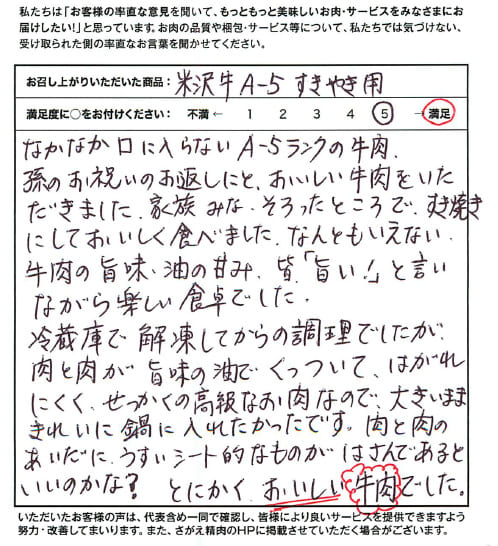 私たちは「お客様の率直な意見を聞いて、もっともっと美味しいお肉・サービスをみなさまにお
届けしたい!」と思っています。お肉の品質や梱包・サービス等について、私たちでは気づけない、
受け取られた側の率直なお言葉を聞かせてください。
お召し上がりいただいた商品: 米沢牛A-5 すきやき用
満足度に○をお付けください: 不満 ← 1 2 3 4 5 → 満足
なかなか口に入らないA-5ランクの牛肉.
孫のお祝いのお返しにと、おいしい牛肉をいた
だきました.家族みな.そろったところで、すき焼き
にしておいしく食べました.なんともいえない.
牛肉の旨味、油の甘み、皆「旨い!」と言い
ながら楽しい食卓でした.
冷蔵庫で解凍してからの調理でしたが、
肉と肉が旨味の油でくっついて、はがれ
にくく、せっかくの高級なお肉なので、大きいまま
きれいに鍋に入れたかったです。肉と肉の
あいだに、うすいシート的なものがはさんであると
いいのかな? とにかく、おいしい牛肉でした。
いただいたお客様の声は、代表含め一同で確認し、皆様により良いサービスを提供できますよう
努力・改善してまいります。また、さがえ精肉のHPに掲載させていただく場合がございます。